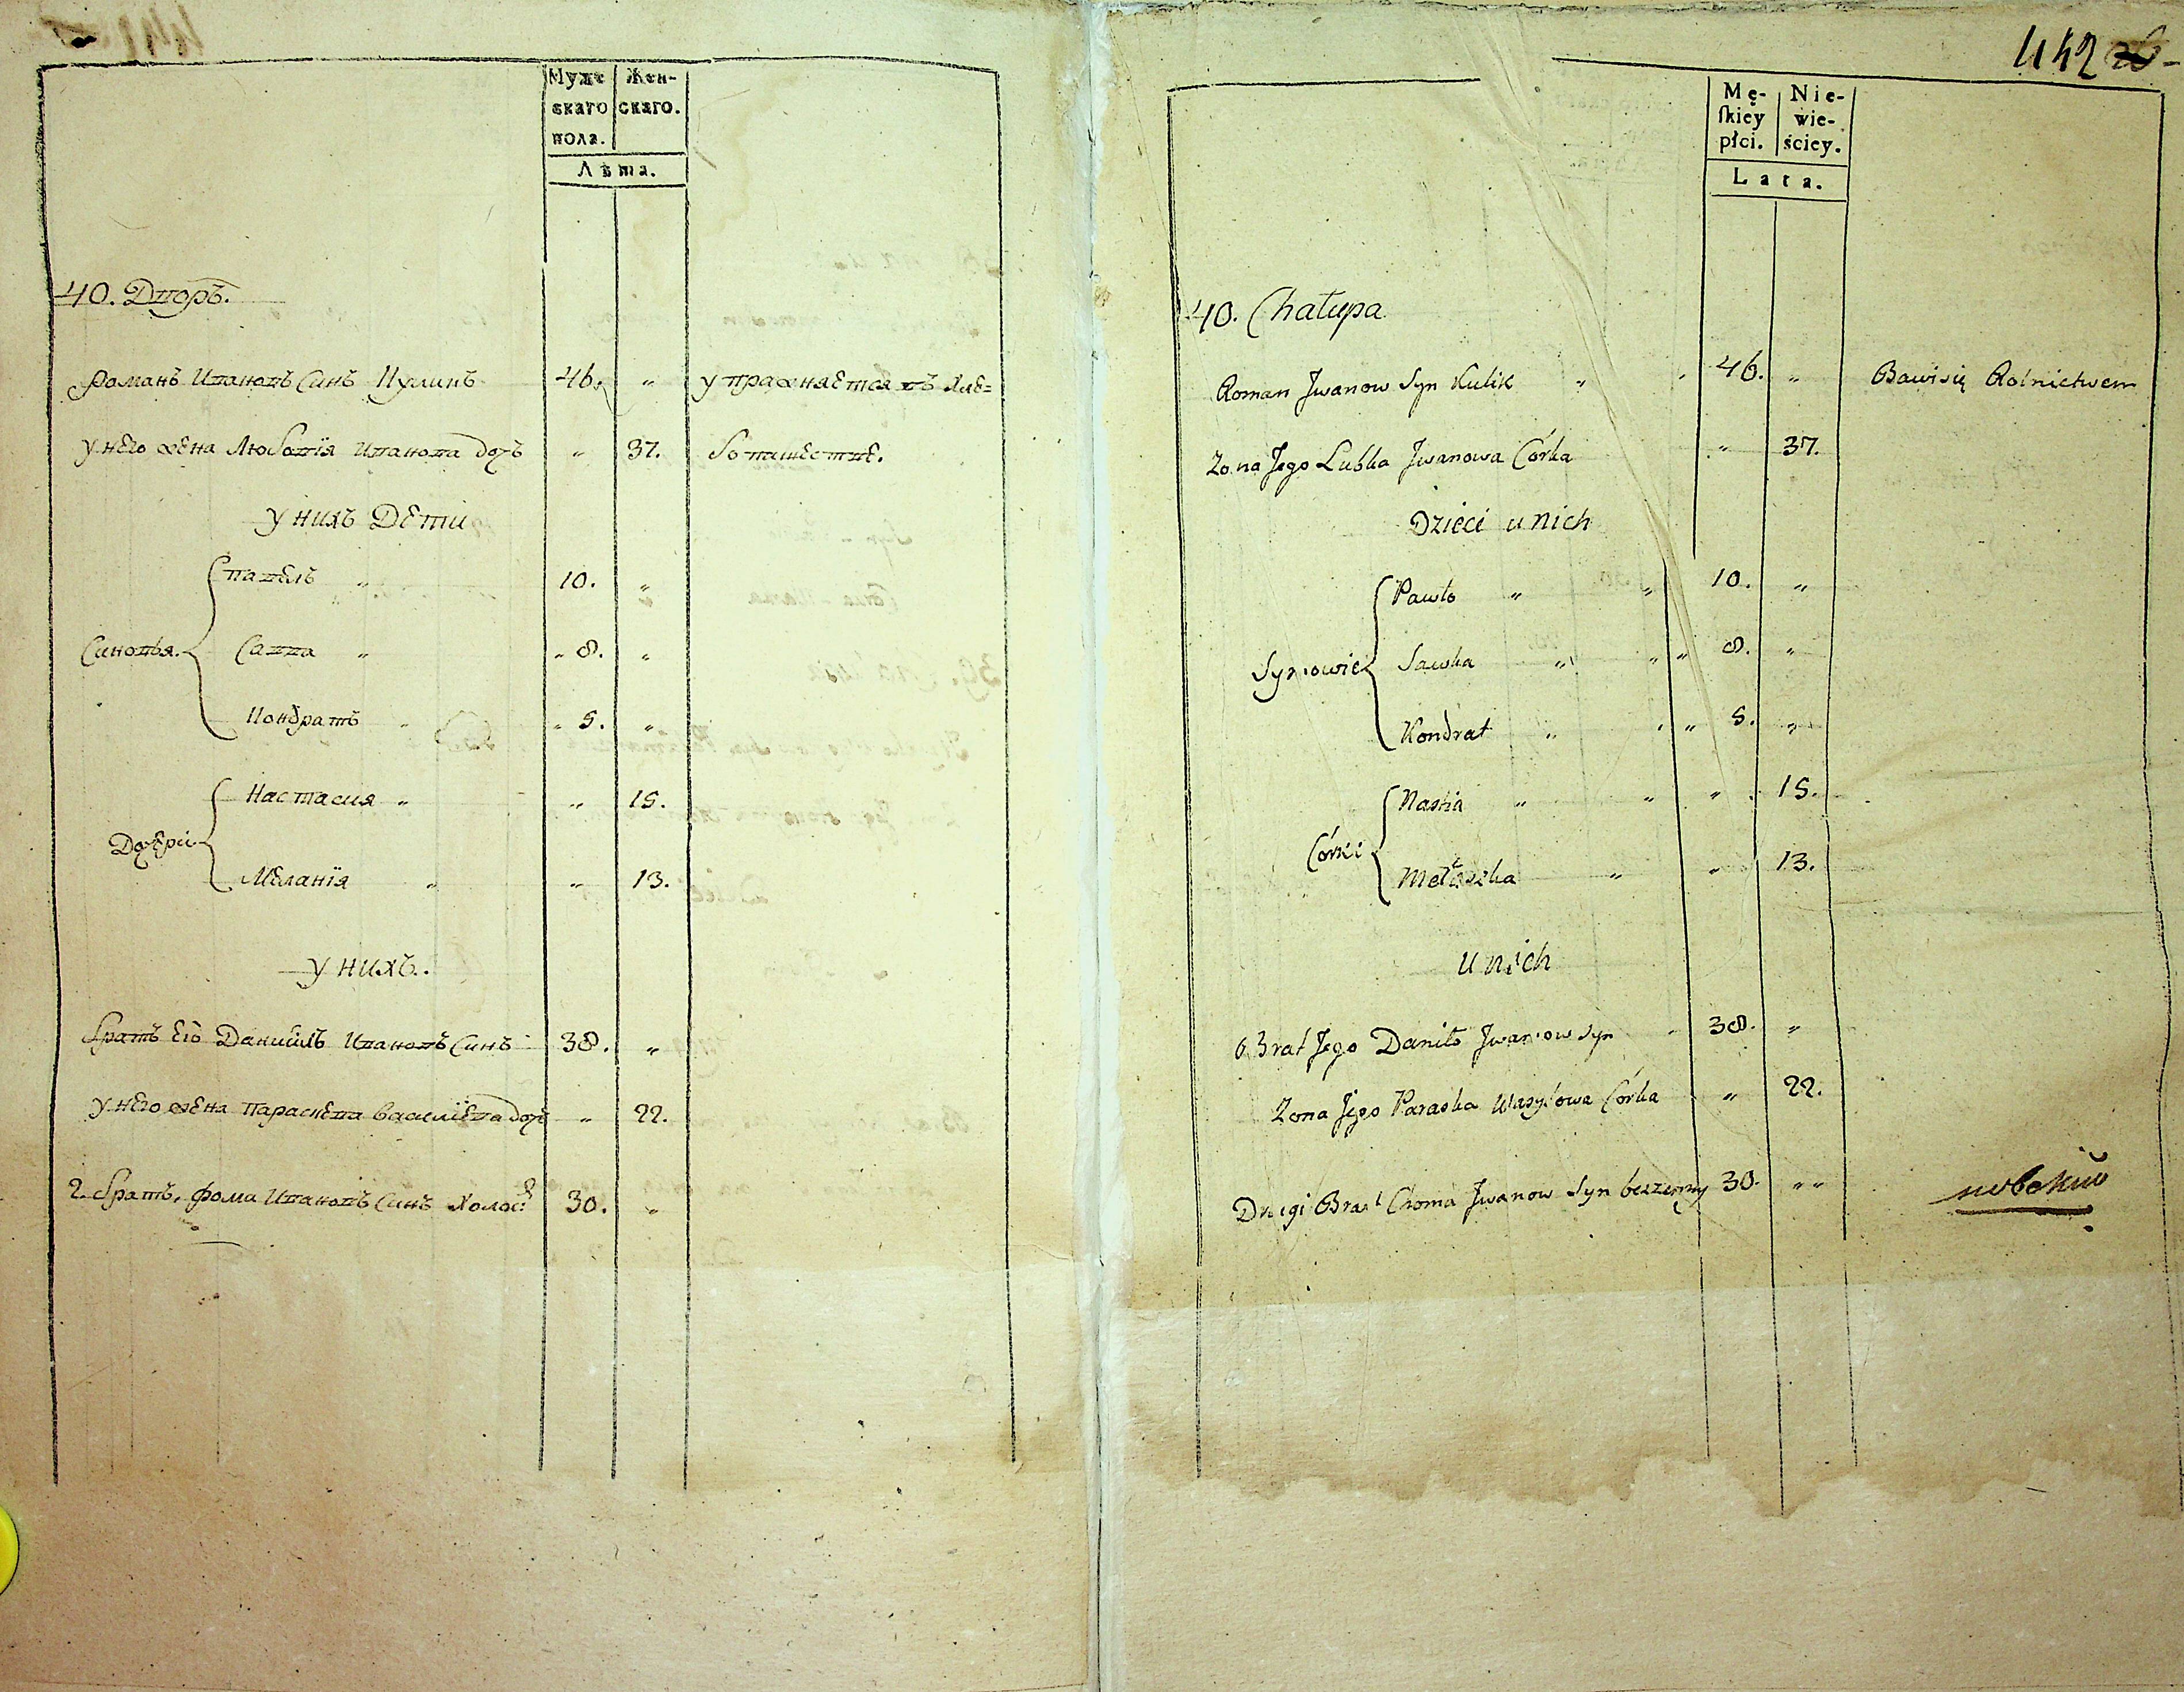 Муже
скаго
пола.
Жен-
скаго.
Лѣта.
40. Дворъ.
Романъ Ивановъ Синъ Куликъ 46. " упражняется въ хле=
у него жена Любовія Иванова дочъ " 37. бопашестве.
у нихъ Дети
Синовья.
Павелъ " 10. "
Савва " " 8. "
Кондратъ " " 5. "
Дочери
Настасия " " 15.
Меланія " " 13.
у нихъ.
братъ его Даниилъ Ивановъ Синъ 38. "
у него жена Параскева Василіева дочъ " 22.
2. братъ, Фома Ивановъ Синъ холос: 30. "
442
Mę-
ſkiey
płci.
Nie-
wie-
ściey.
Lata.
40. Chałupa
Roman Jwanow Syn Kulik " 46. " Bawi się Rolnictwem
Zona Jego Lubka Jwanowa Córka " 37.
Dzieci u nich
Synowie
Pawło " " 10. "
Sawka " " " 8. "
Kondrat " " " 5. "
Córki
Nastia " " " 15.
Mełaszka " " 13.
u nich
Brat Jego Daniło Jwanow Syn 38. "
Zona Jego Paraska Wasylowa Córka " 22.
Drugi Brat Choma Jwanow Syn bezzenny 30. " "